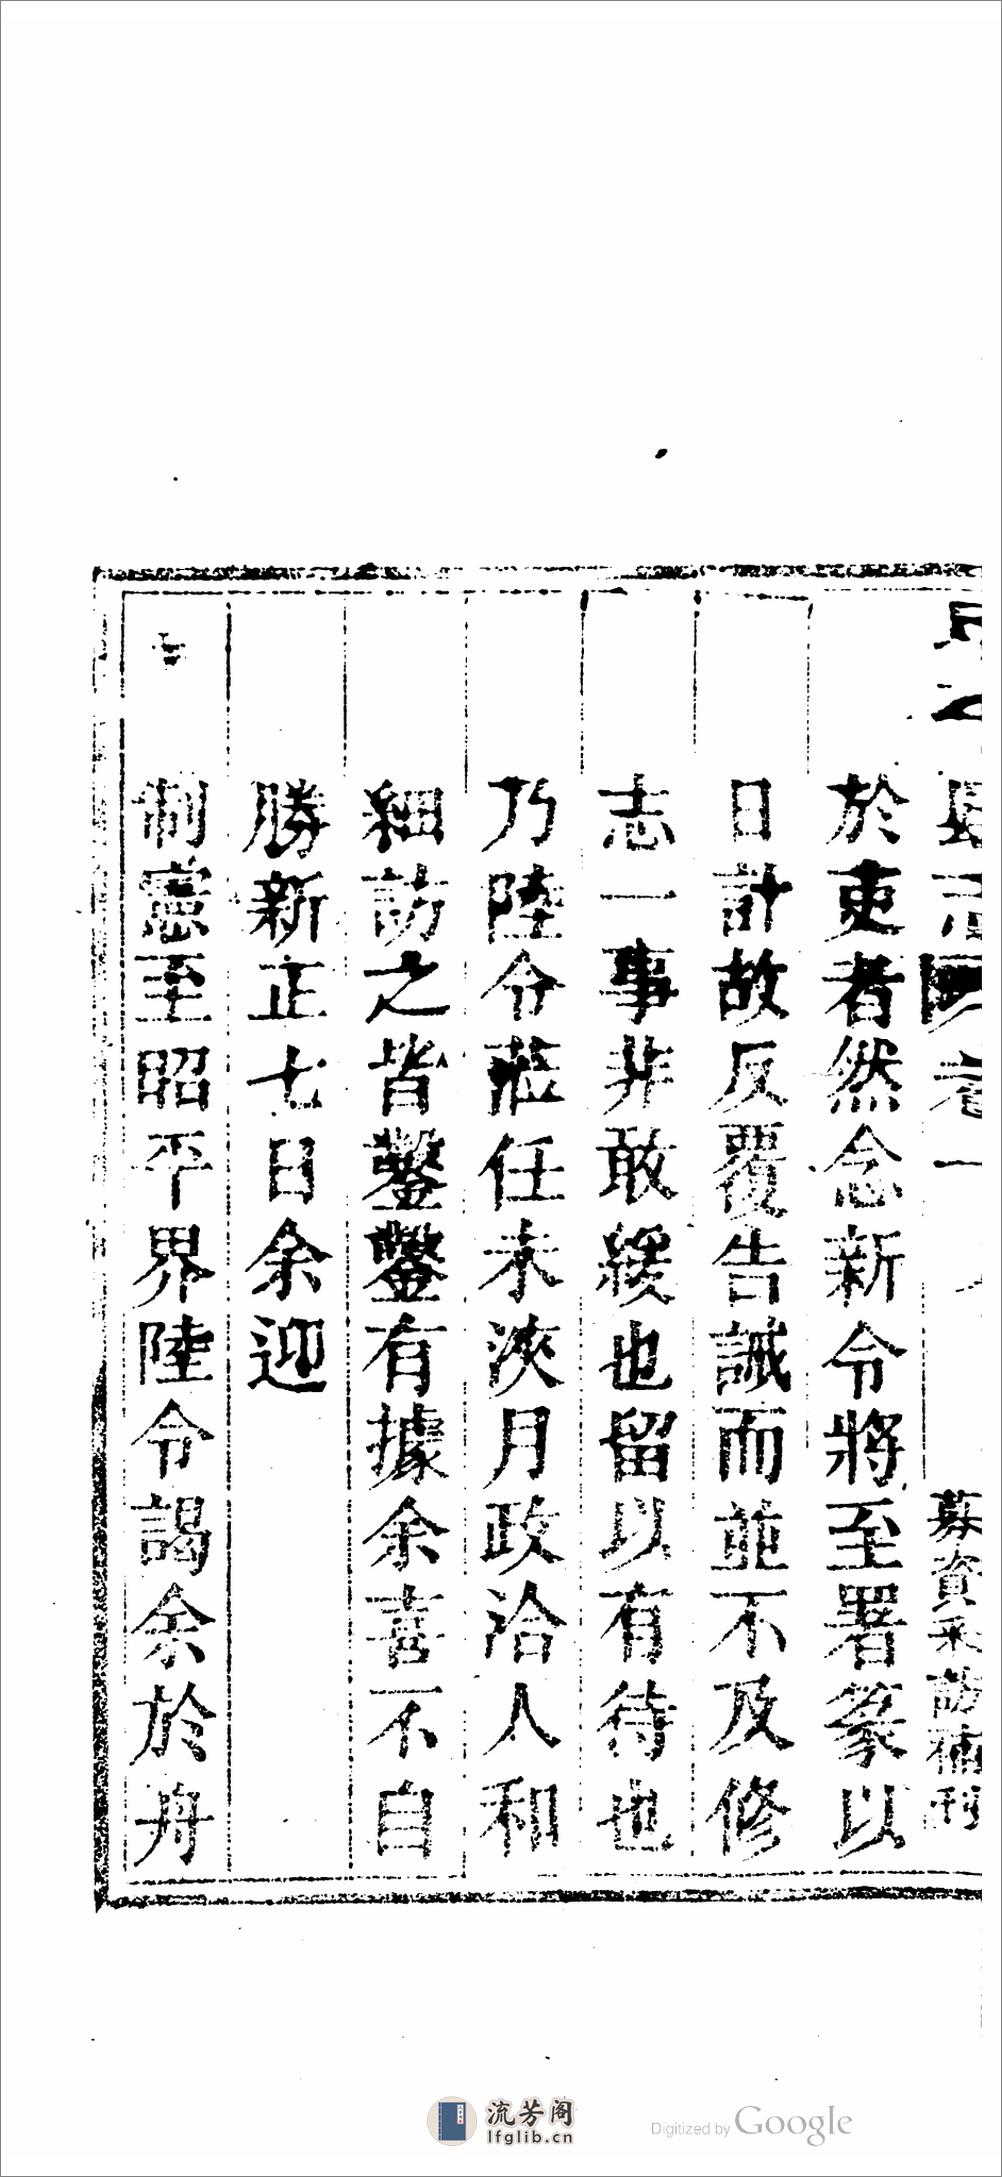 縣志 卷一 募資采訪補刊
於吏者然念新令將至署篆以
日計故反覆告誡而並不及修
志一事非敢緩也留以有待也
乃陸令蒞任未浹月政洽人和
細訪之皆鑿鑿有據余喜不自
勝新正七日余迎
制憲至昭平界陸令謁余於舟
流芳阁
lfglib.cn
Digitized by Google